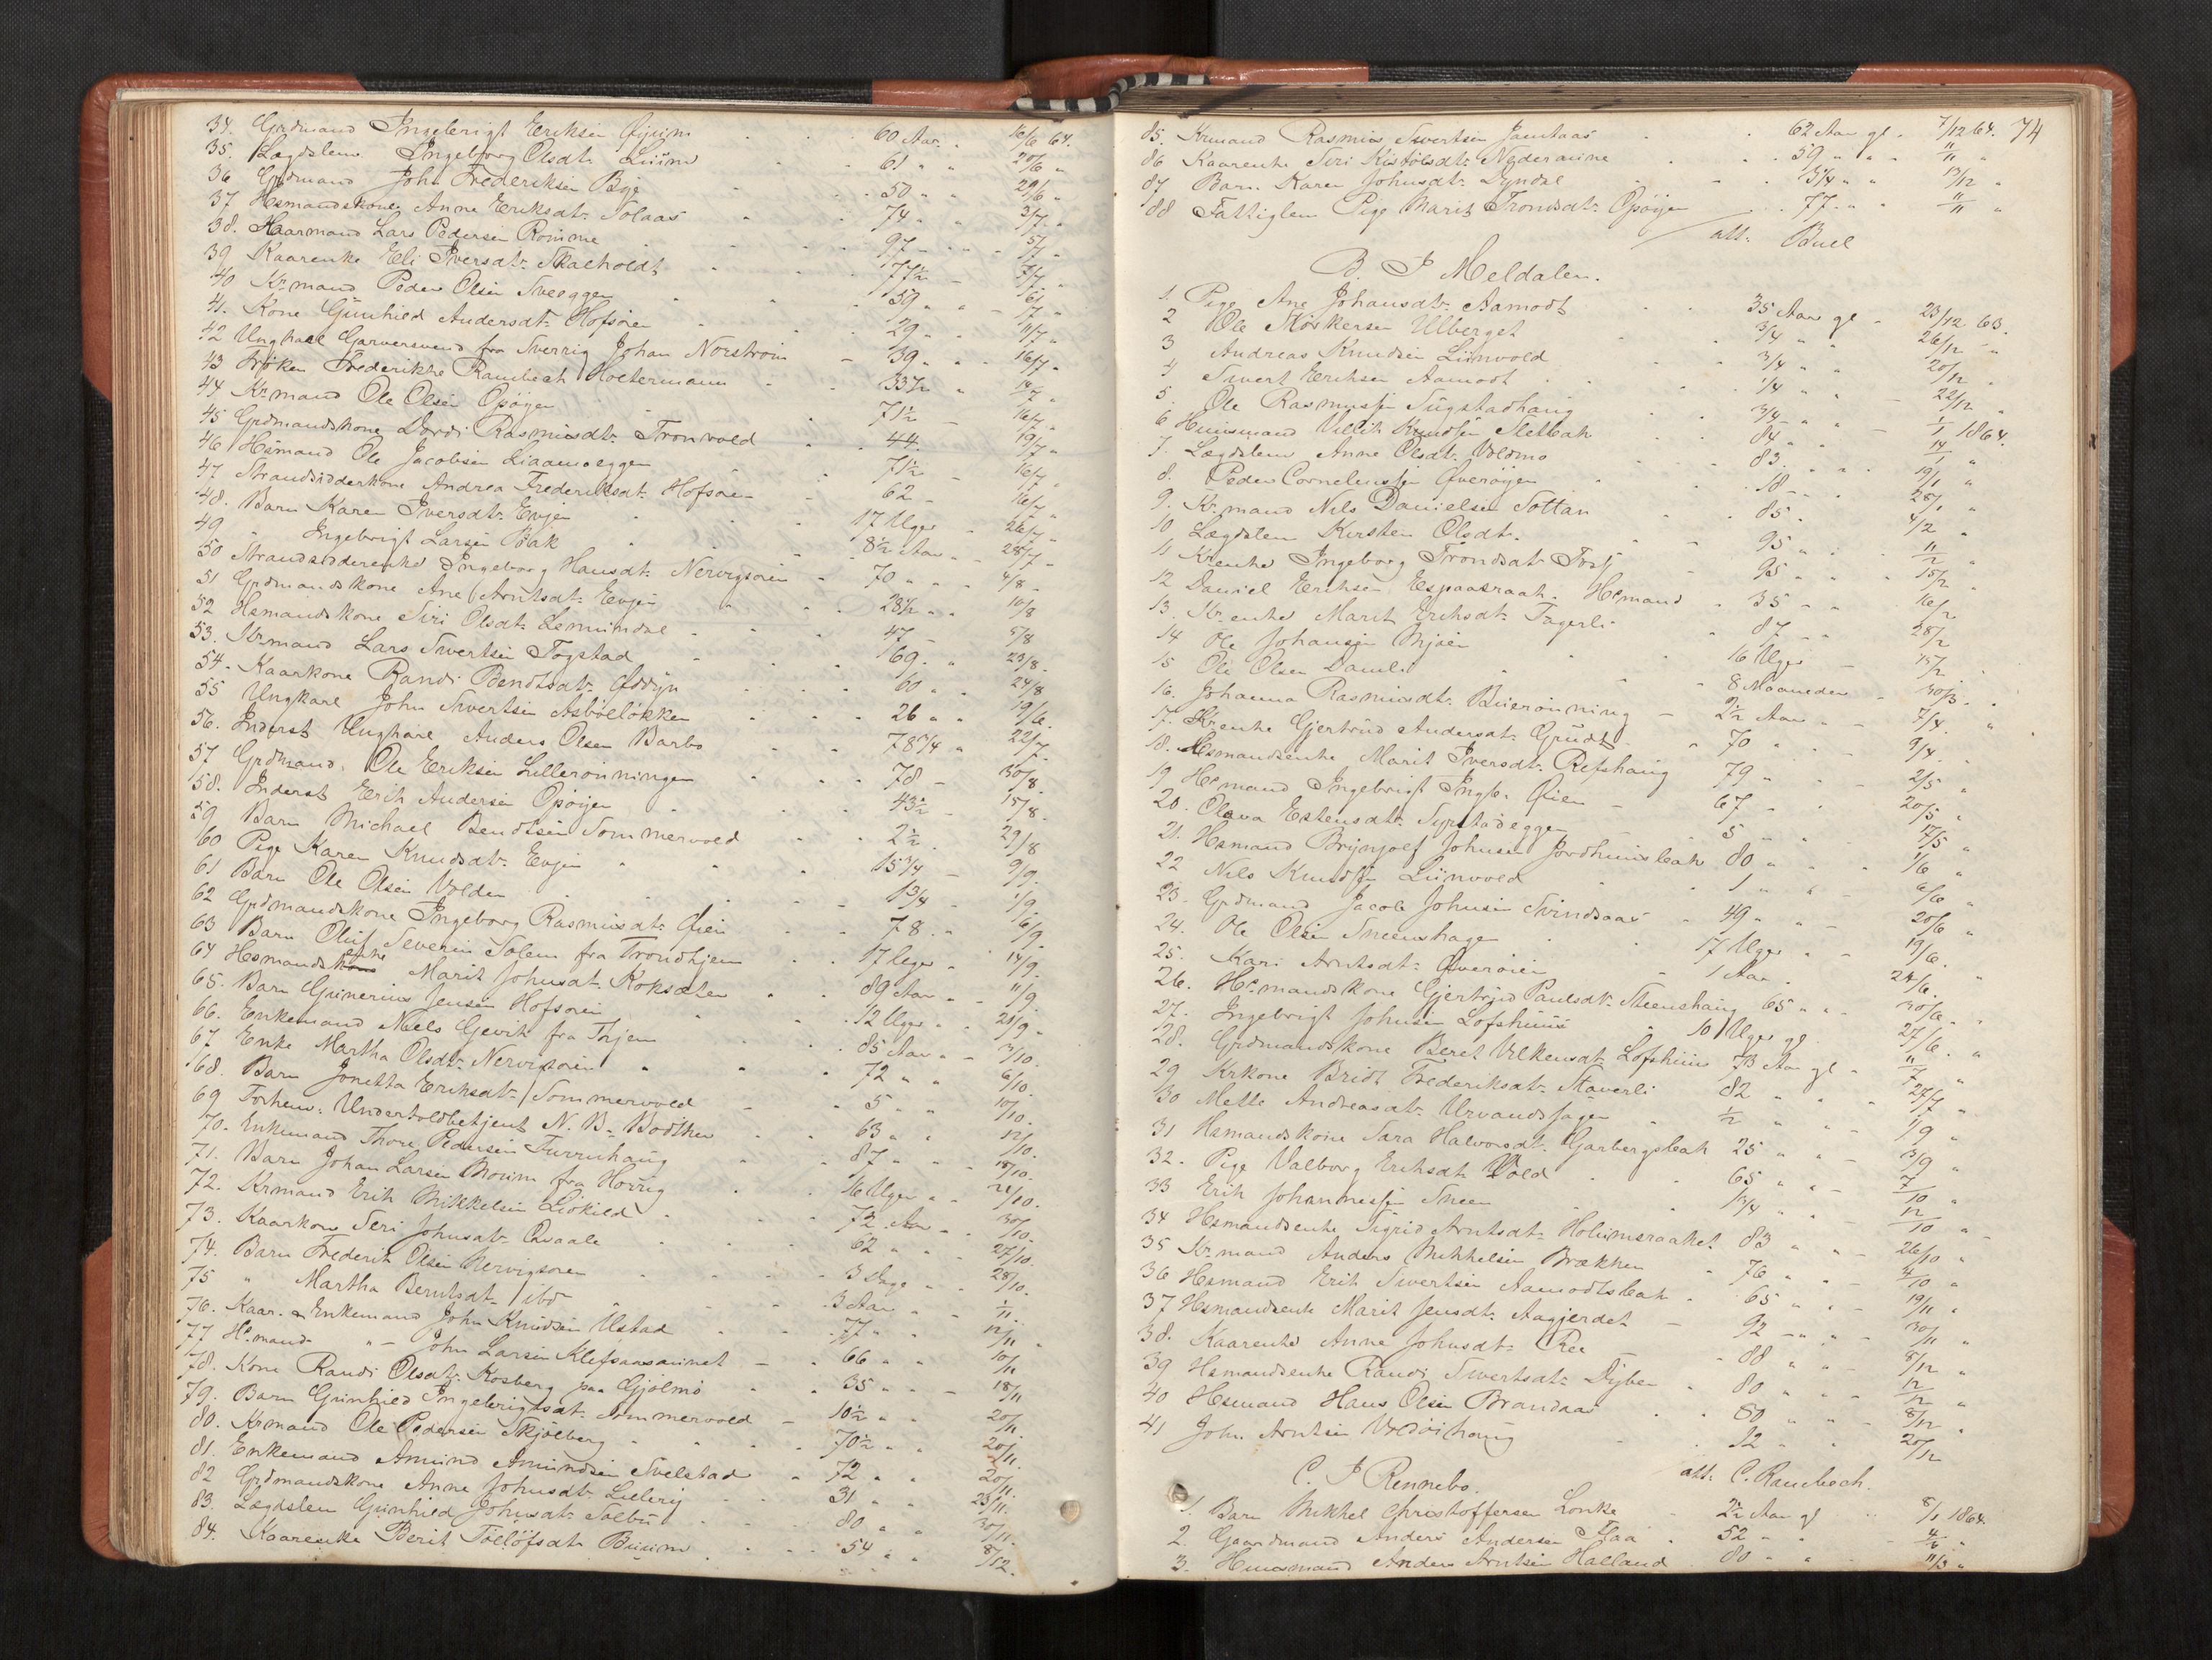 34. Grdmand Ingebrigt Eriksen Øyum 60 Aar. 16/6 64.
35. Lægdslem Ingebjorg Olsdt. Liium 61 " " 20/6 "
36 Grdmand John Frederiksen Bye 50 " " 29/6 "
37 Hsmandskone Anne Eriksdt. Solaas 74 " " 3/7 "
38. Haarmand Lars Pedersen Romme 97 " " 5/7 "
39 Kaarenke Eli Iversdt. Skalholdt 77 1/2 " 7/7 "
40 Krmand Peder Olsen Sveeggen 59 " " 6/7 "
41. Kone Gunhild Andersdt. Hofsøren 29 " " 11/7 "
42 Ungkarl Garversvend fra Sverrig Johan Norstrøm 39 " " 16/7 "
43 Frøken Frederikke Rambech Holtermann 33 1/2 " 14/7 "
44 Krmand Ole Olsen Opøyen 71 1/2 16/7 "
45 Grdmandskone Dordi Rasmusdt. Tronvold 44 19/7 "
46 Hsmand Ole Jacobsen 71 1/2 16/7 "
47 Strandsidderkone Andrea Frederiksdt. Hofsøren 62 - 16/7 "
48. Barn Karen Iversdt. Evjen 17 Uger 26/7 "
49 " Ingebrigt Larsen Bak 8 1/2 Aar " 28/7 "
50 Strandsidderenke Ingeborg Hansdt. Nervigsøren 70 " " 4/8 "
51 Grdmandskone Ane Arntsdt. Evjen 28 1/2 " " 10/8
52 Hsmandskone Siri Olsdt. Lomundal 47 - 5/8
53. Krmand Lars Sivertsen Togstad 69. " 23/8.
54. Kaarkone Randi Bendtsdt. 60 " " 24/8
55 Ungkarl John Sivertsen Asbøløkken 26 " " 19/6.
56. Inderst Ungkarl Anders Olsen Barbo 78 3/4 " 22/7.
57 Grdmand. Ole Eriksen Lillerønningen 78 - 30/8.
58. Inderst Erik Andersen Opøyen 43 1/2 - 15/8.
59 Barn Michael Bendtsen Sommervold 2 1/2. 29/8
60 Pige Karen Knudsdt. Evjen 15 3/4 - 9/9.
61 Barn Ole Olsen Volden 1 3/4 - 1/9.
62 Grdmandskone Ingeborg Rasmusdt. Øien 78. " 6/9.
63 Barn Oluf Severin Solem fra Trondhjem 17 Uger " 14/9.
64 Hsmandsenke Marit Johnsdt. Koksæter 89 Aar " - 11/9.
65. Barn Gunerius Jensen Hofsøren 12 Uger " " 20/9 "
66. Enkemand Niels Gevik fra Thjem 85 Aar " " 3/10.
67 Enke Martha Olsdt. Nervigsøren 72 " " 6/10.
68. Barn Jonetta Eriksdt. Sommervold 5 " " 10/10.
69 Forhenv. Undertoldbetjent N. B. Bødtker 63 " " 12/10.
70. Enkemand Thore Pedersen Furruhaug 87 " " 18/10.
71. Barn Johan Larsen Moum fra Horrig 16 Uger " " 21/10.
72. Krmand Erik Mikkelsen Liøkild 72 Aar " 30/10.
73. Kaarkone Seri Johnsdt. Qvaale 62 " " 27/10.
74. Barn Frederik Olsen Nervigsøren 3 Dage " " 28/10.
75 " Martha Berntsdt. ibd 3 Aar " " 1/11.
76. Kaar- & Enkemand John Knudsen Ustad 77 " " 12/11 "
77 Hsmand " - John Larsen Klefsaasaunet 66 " " 10/11
78. Kone Randi Olsdt. Kosberg paa Gjølmo 35 " " 18/11
79. Barn Gunhild Ingebrigtsdt. Sommervold 10 1/2 " " 20/11.
80. Krmand Ole Pedersen Skjølberg 70 1/2 " " 20/11.
81. Enkemand Amund Amundsen Svelstad 72 " " 20/11.
82 Grdmandskone Anne Johnsdt. 31 " " 23/11.
83. Lægdslem Gunhild Johnsdt. Solbu 80 " " 30/11.
84. Kaarenke Berit Tøeløfsdt. 54 " " 8/12.
85. Krmand Rasmus Sivertsen Jamtaas 62 Aar gl. 7/12 64. 74
86 Kaarenke Siri Kistølsdt. Nederaune 59 " " 11/11 "
87 Barn. Karen Johnsdt. Dyndal 13 1/4 " " 13/12 "
88 Fattiglem Pige Marit Trondsdt. Opøyen 77. " " 11/11 "
att. Buck
B. I Meldalen.
1. Pige Ane Johansdt. Aamodt 35 Aar gl - 23/12 63.
2 Ole Størkersen Ulberget 3/4 " " 26/12 "
3 Andreas Knudsen Liinvold 3/4 " " 20/12 "
4 Sivert Eriksen Aamodt 1/4 " " 22/12 "
5. Ole Rasmussen Sugstadhaug 3/4 " " 1/1 1864.
6 Huusmand Ullrik Knudsen Sletbak 84 " " 14/1 "
7. Lægdslem Anne Olsdt. Voldmo 83. " " 19/1 "
8. Peder Cornelussen Øverøyen 18 " " 28/1 "
9. Krmand Nils Danielsen Sottan 85. 4/2 "
10. Lægdslem Kirsten Olsdt. 95 " " 11/2 "
11 Krenke Ingeborg Trondsdt. 95 " " 15/2 "
12 Daniel Eriksen Espaasraak. Hsmand 35 " " 16/2
13. Krenke Marit Eriksdt. Fagerli 87 " " 28/2
14 Ole Johansen Mjøen 16 Uger 15/2
15 Ole Olsen Damli 8 Maaneder - 30/3. "
16. Johanna Rasmusdt. 2 1/2 Aar " 7/4. "
17. Krenke Gjertrud Andersdt. Grudt 70 " 9/4. "
18. Hsmandsenke Marit Iversdt. Refshaug 79 " " 2/5 "
19 Hsmand Ingebrigt Ingbr. Øien 67 " " 20/5 "
20. Olava Estensdt. Syrstadeggen 5 " " 17/5 "
21. Hsmand Brynjolf Johnsen Jordhuusbak 80 " " 1/6 "
22 Nils Knudsen Liinvold 1 " " 6/6 "
23. Grdmand Jacob Johnsen Svindsaas 49 " " 20/6 "
24. Ole Olsen Sneenshage 17 Uger " 19/6. "
25. Kari Arntsdt. Øverøien 1 Aar. 24/6. "
26. Hsmandskone Gjertrud Paulsdt. Steenshaug 65 " " 30/6. "
27. Ingebrigt Johnsen Lofshuus 10 Uger gl 27/6. "
28. Grdmandskone Beret Vilkensdt. Lofshuus 73 Aar gl - 11/7 "
29 Krkone Bridt Frederiksdt. Staverli 82 " " 27/7 "
30 Mette Andreasdt. Urvandsjagen 1/2 " " 1/9 "
31 Hsmandskone Sara Halvorsdt. Garbergsbak 25 " " 13/9 "
32. Pige Valborg Eriksdt. Vold 65 " " 7/10 "
33 Erik Johannessen Sneen 1 3/4 " " 12/10 "
34 Hsmandsenke Sigrid Arntsdt. Holumsraaket 83 " " 26/10 "
35 Krmand Anders Mikkelsen Brækken 76 " " 4/10 "
36 Hsmand Erik Sivertsen Aamodtsbak 65 " " 19/11 "
37 Hsmandsenke Marit Jensdt. Aagjerdet 92 " " 30/11 "
38. Kaarenke Anne Johnsdt. Ree 88 " " 8/12 "
39 Hsmandsenke Randi Sivertsdt. Dyben 80 " " 12/12 "
40 Hsmand Hans Olsen Brandaas 80 " " 8/12 "
41 John Arntsen 12 " " 20/12
att. C. Rambech.
C. I Rennebo.
1. Barn Mikkel Christoffersen Lonke 2 1/2 Aar gl 8/1 1864.
2. Gaardmand Anders Andersen Flaa 52 " " 4/6 "
3. Huusmand Anders Arntsen Halland 80 " " 11/3 "